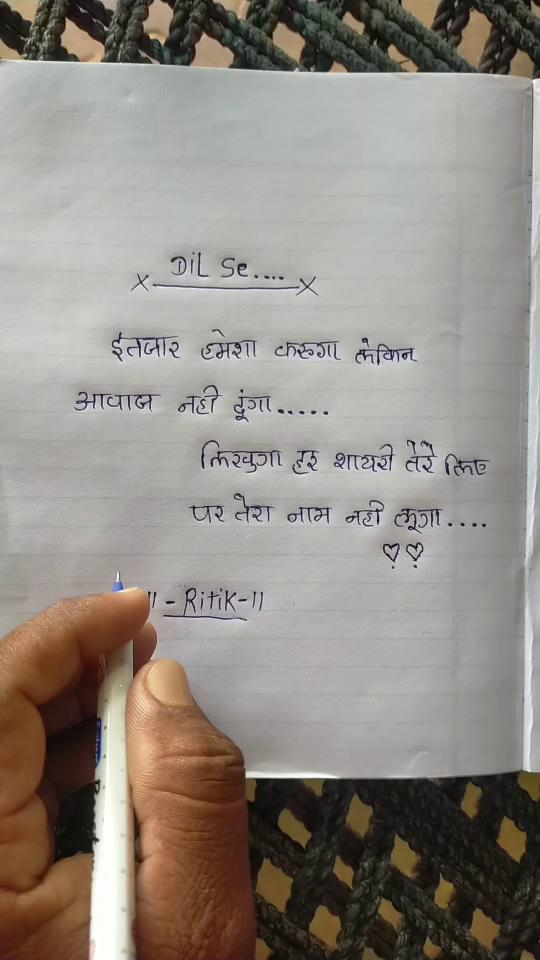 DiL Se....
इंतजार हमेशा करुगा लेकिन
आवाज नही दूंगा.....
लिखुगा हर शायरी तेरे लिए
पर तेरा नाम नही लूगा....
॥ - RitiK-॥